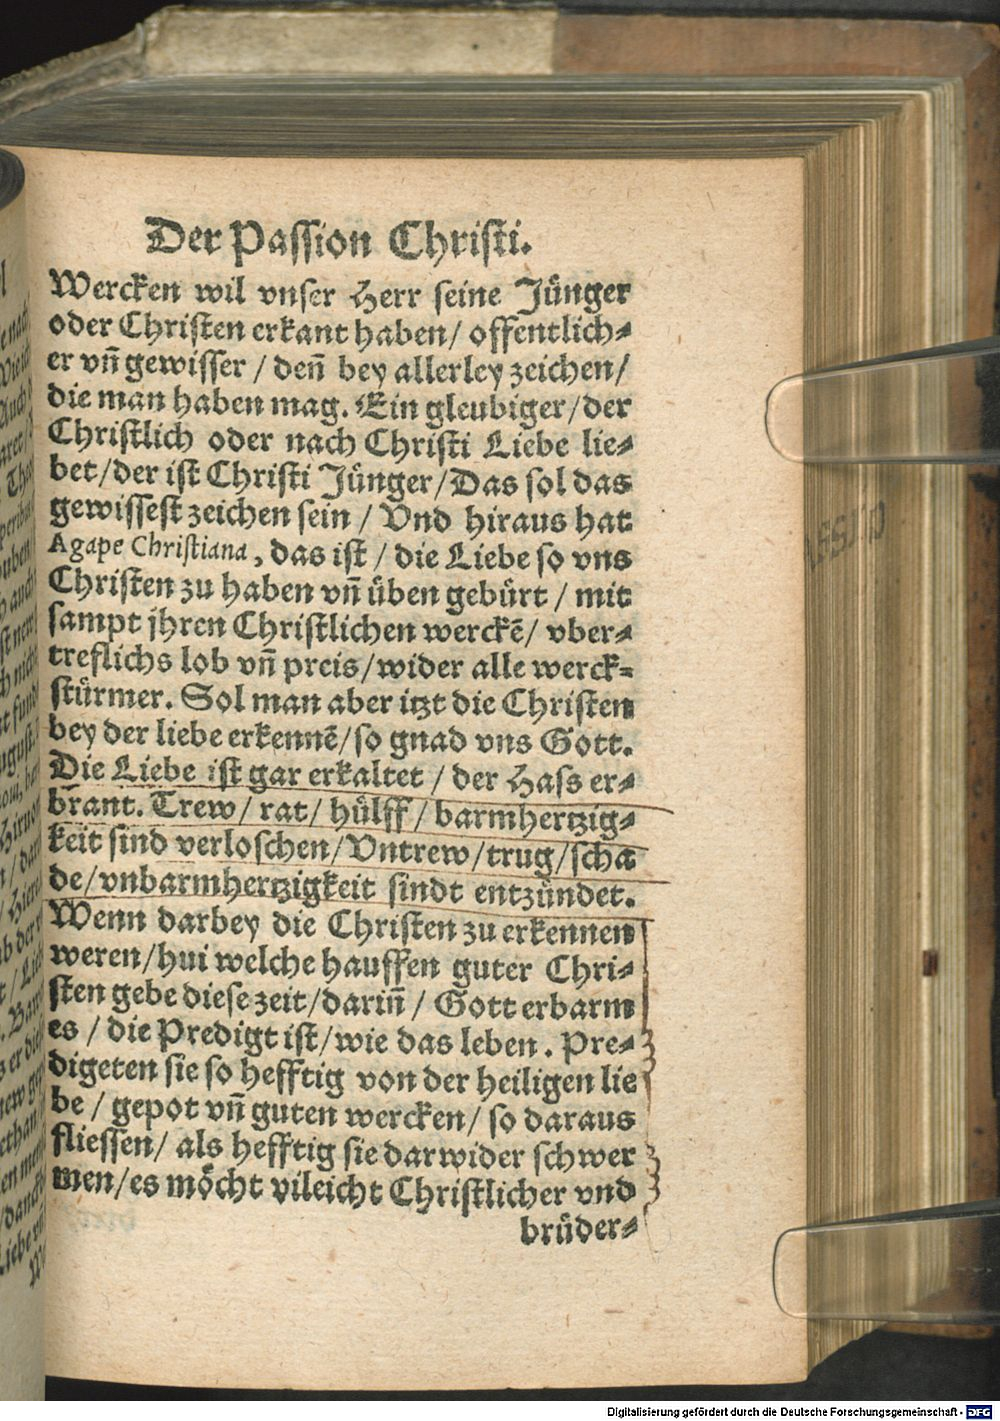 Der Passion Christi.
Wercken wil vnser Herr seine Jünger
oder Christen erkant haben/ offentlich⸗
er vñ gewisser / deñ bey allerley zeichen/
die man haben mag. Ein gleubiger/der
Christlich oder nach Christi Liebe lie⸗
bet/der ist Christi Jünger/Das sol das
gewissest zeichen sein / Vnd hiraus hat
Agape Christiana, das ist / die Liebe so vns
Christen zu haben vñ üben gebürt / mit
sampt jhren Christlichen werckē/ vber⸗
treflichs lob vñ preis/wider alle werck⸗
stürmer. Sol man aber itzt die Christen
bey der liebe erkennē/so gnad vns Gott.
Die Liebe ist gar erkaltet / der Hass er⸗
brant. Trew/ rat/ hülff/ barmhertzig⸗
keit sind verloschen/Vntrew/trug/scha
de/vnbarmhertzigkeit sindt entzündet.
Wenn darbey die Christen zu erkennen
weren/hui welche hauffen guter Chri⸗
sten gebe diese zeit/dariñ / Gott erbarm
es / die Predigt ist/wie das leben. Pre⸗
digeten sie so hefftig von der heiligen lie
be / gepot vñ guten wercken/ so daraus
fliessen/ als hefftig sie darwider schwer
men/es möcht vileicht Christlicher vnd
brüder⸗
Digitalisierung gefördert durch die Deutsche Forschungsgemeinschaft - DFG